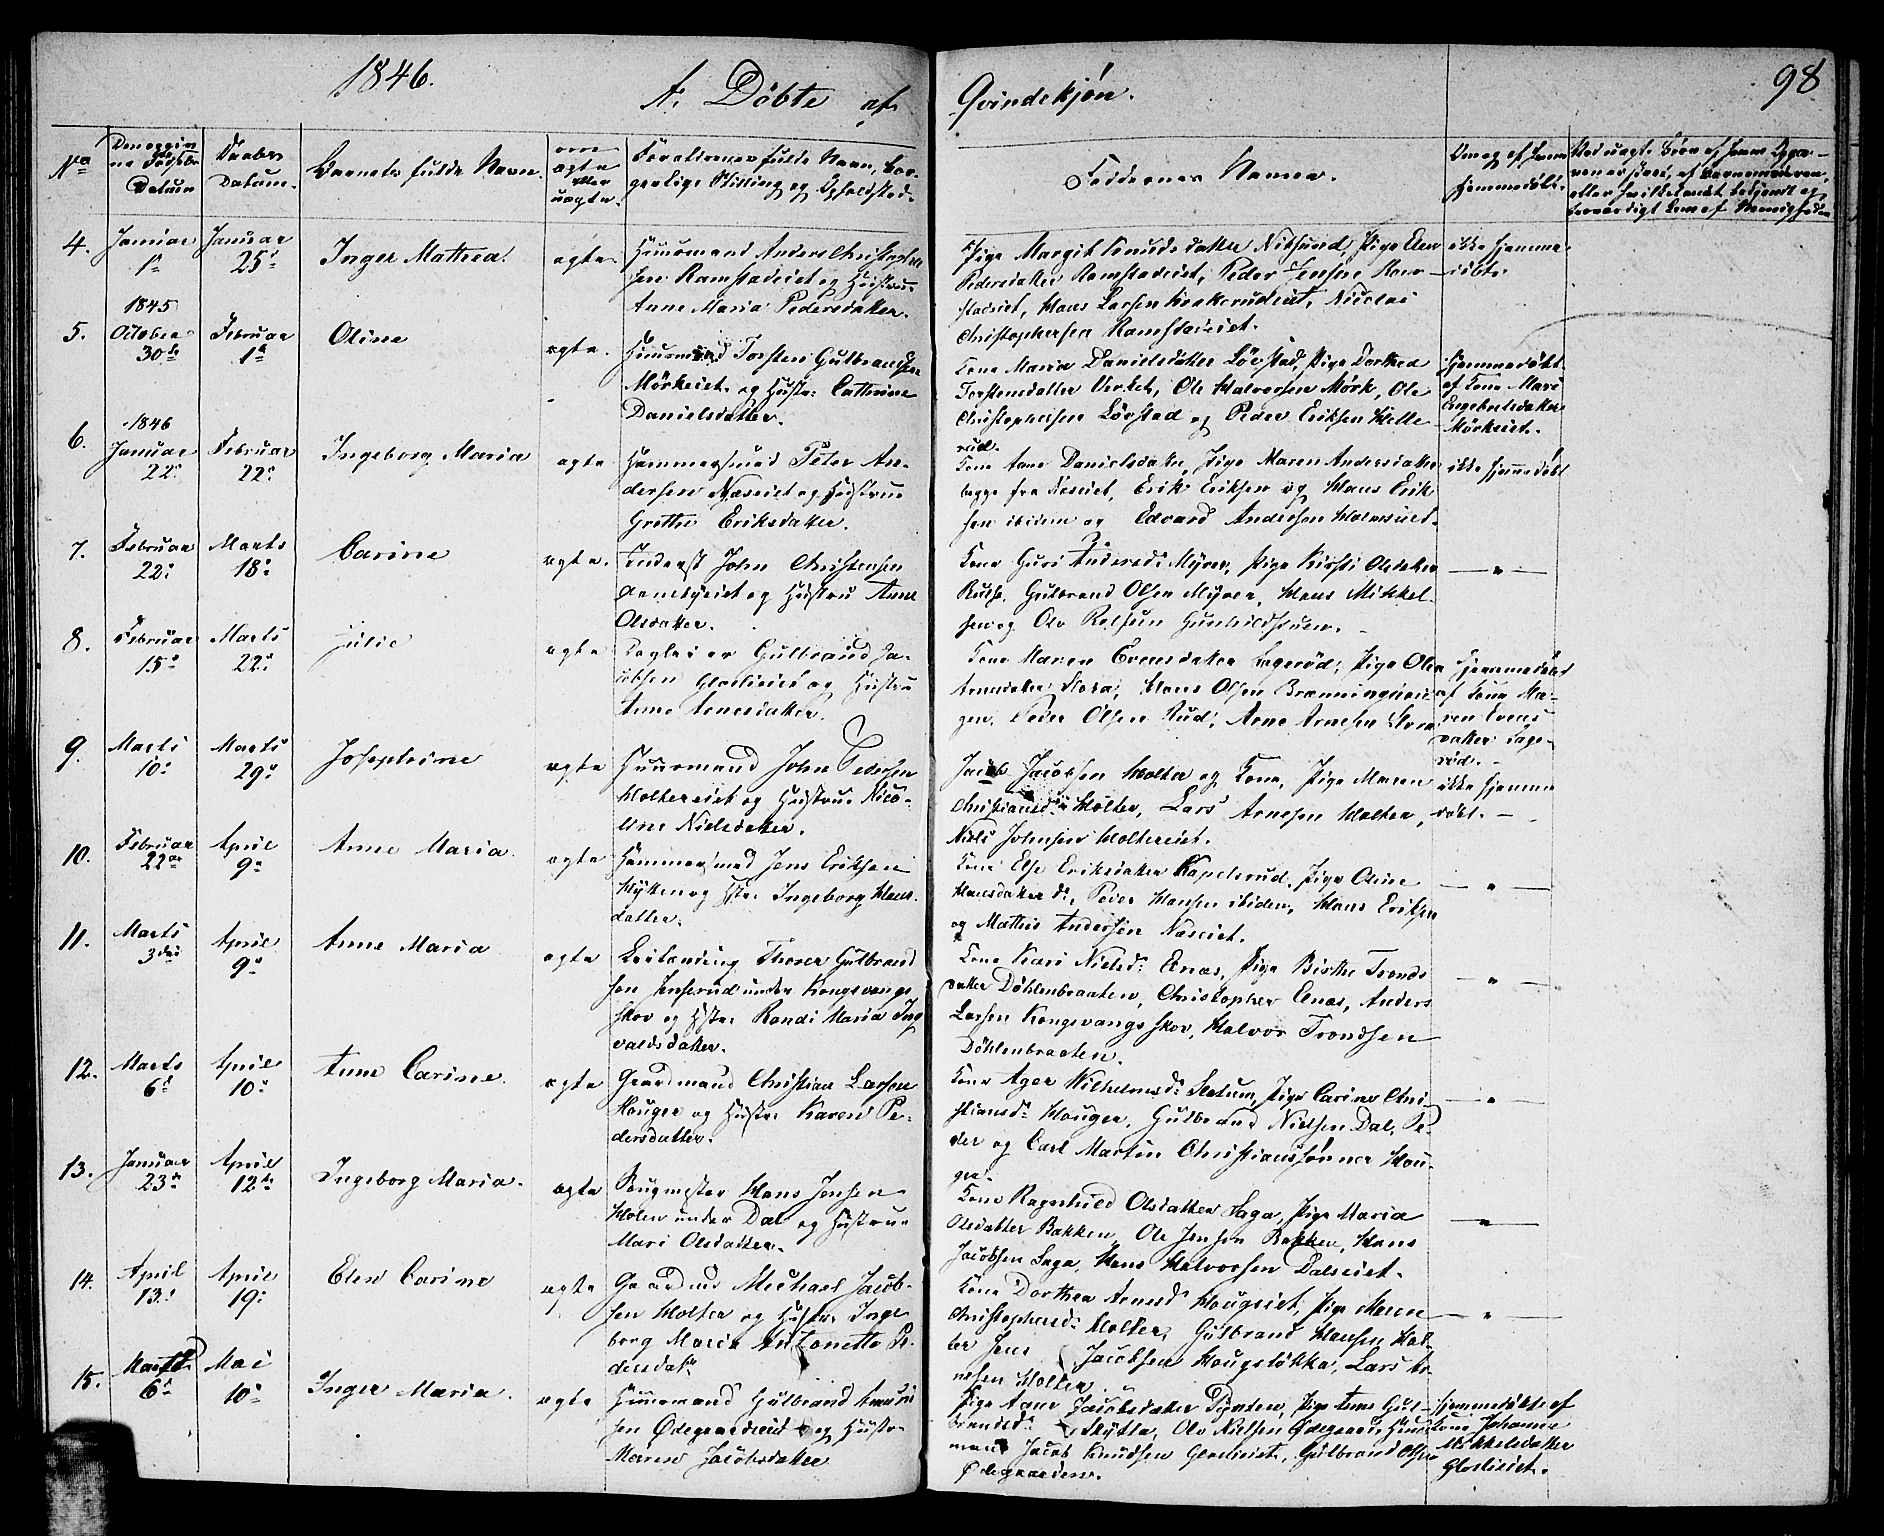 1846.
A. Døbte af Qvindekjön.
98
No
Barnets fulde Navn.
ægte eller uægte.
Faddernes Navne.
4.
Januar 1ste
Januar 25de
Inger Mathea.
ægte.
Huusmand Anders Christopher
sen Ramstadeiet og Hustru
Anne Maria Pedersdatter.
Pige Margit Knudsdatter Nitsund, Pige Elen
Pedersdatter Ramstadeiet, Peder Jensen Ram-
stadeiet, Hans Larsen Haakerudeiet, Nicolai
Christophersen Ramstadeiet.
ikke hjemme-
døbt.
5.
1845
October 30te
Februar 1ste
Oline
ægte.
Huusmand Torsten Gulbrandsen
Mörkeiet og Hustr: Cathrine
Danielsdatter.
Kone Maria Danielsdatter Lövstad, Pige Dorthea
Torstensdatter Verket, Ole Halvorsen Mörk, Ole
Christophersen Lövstad og Peder Eriksen Helle-
rud.
Hjemmedøbt
af Kone Mari
Engebretsdatter
Mörkeiet.
6.
1846
Januar 22:
Februar 22:
Ingeborg Maria
ægte
Hammersmed Peter An-
dersen Næseiet og Hustrue
Grethe Eriksdatter.
Kone Anne Danielsdatter, Pige Maren Andersdatter
begge fra Næseiet, Erik Eriksen og Hans Erik
sen ibidem og Edvard Andersen Holmseiet.
ikke hjemmedøbt
7.
Februar 22:
Marts 18:
Carine
ægte.
Inderst John Christensen
og Hustru Anne
Olsdatter.
Kone Guri Andersd: Myrer, Pige Kirsti Olsdatter
Gulbrand Olsen Myrer, Hans Mikkel-
sen og Ole
— " —
8.
Februar 15:
Marts 22:
Julie
ægte
Gulbrand Ja-
cobsen Gloslieiet og Hustru
Anne Arnesdatter.
Kone Maren Evensdatter Sagerød, Pige Olea
Arnesdatter Hora, Hans Olsen
gen, Peder Olsen Rud, Arne Arnesen Hora
Hjemmedøbt
af Kone Ma-
ren Evens
datter Sage-
rød.
9.
Marts 10:
Marts 29:
Josephine
ægte
Huusmand John Pedersen
Holtereiet og Hustrue Nico-
line Nielsdatter.
Jacob Jacobsen Holter og Kone, Pige Maren
Christiansd: Holter, Lars Arnesen Holter,
Niels Johnsen Holtereiet.
ikke hjemme
døbt.
10.
Februar 22de
April 9:
Anne Maria.
ægte
Hammersmed Jens Eriksen
Hytten og Hstr: Ingeborg Hans-
datter.
Kone Else Eriksdatter Kapelsrud, Pige Oline
Hansdatter do, Peder Hansen ibidem, Hans Eriksen
og Mathis Andersen Næseiet.
— " —
11.
Marts 3die
April 9:
Anne Maria
ægte
Leilænding Thorer Gulbrand
sen Jenserud under Kongsvangs
skov og Hstr: Randi Maria Ing
valdsdatter.
Kone Kari Nielsd: Enæs, Pige Birthe Tronds
datter Döhlenbraaten, Christopher Enæs, Anders
Larsen Kongsvangsskov, Halvor Trondsen
Döhlenbraaten.
— " —
12.
Marts 6:
April 10:
Anne Carine.
ægte
Gaardmand Christian Larsen
Houger og Hustr: Karen Pe-
dersdatter.
Kone Ager Wilhelmsd: Slatum, Pige Carine Chri
stiansd: Houger, Gulbrand Nielsen Dal, Pe-
der og Carl Martin Christiansönner Hou-
ger.
— " —
13.
Januar 23de
April 12te
Ingeborg Maria.
ægte
Brugmester Hans Jensen
Holen under Dal og Hustrue
Mari Olsdatter.
Kone Ragnhild Olsdatter Saga, Pige Maria
Olsdatter Bakken, Ole Jensen Bakken, Hans
Jacobsen Saga, Hans Halvorsen Dalseiet.
— " —
14.
April 13:
April 19:
Elen Carine
ægte
Gaardmd Michael Jacob-
sen Holter og Hustr: Inge
borg Maria Antonette Pe-
dersdatr
Kone Dorthea Arnesd: Hougseiet, Pige Maren
Christophersd: Holter, Gulbrand Hansen Hol-
ter, Jens Jacobsen Hougslökka, Lars Ar-
nesen Holter.
— " —
15.
Marts 6:
Mai 10:
Inger Maria.
ægte
Huusmand Gulbrand Knud
sen Ødegaardseiet og Hustr:
Maren Jacobsdatter
Pige Anne Jacobsdatter Pynten, Pige Anne Gul-
brandsd: Skytta, Ole Nielsen Ødegaard, Huus
mand Jacob Knudsen Gloslieiet, Gulbrand Olsen
Ødegaarden.
Hjemmedøbt af
Kone Johanne
Mikkelsdatter
Gloslieiet.